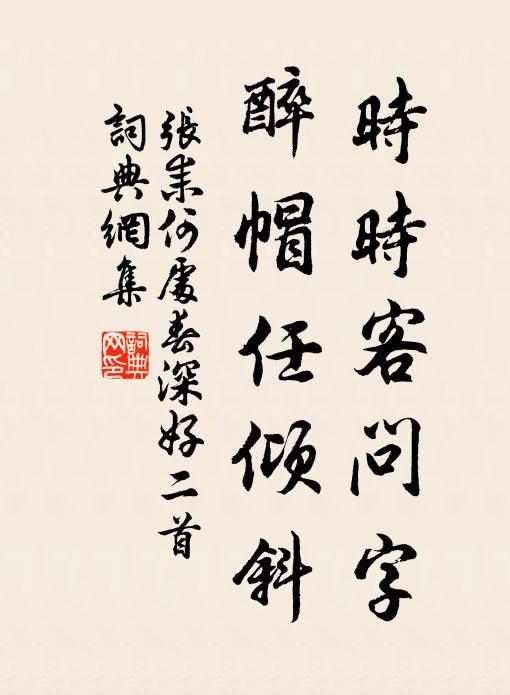 時時客問字
醉帽任傾斜
張耒何處春深好二首
詞典網集
詞典网印